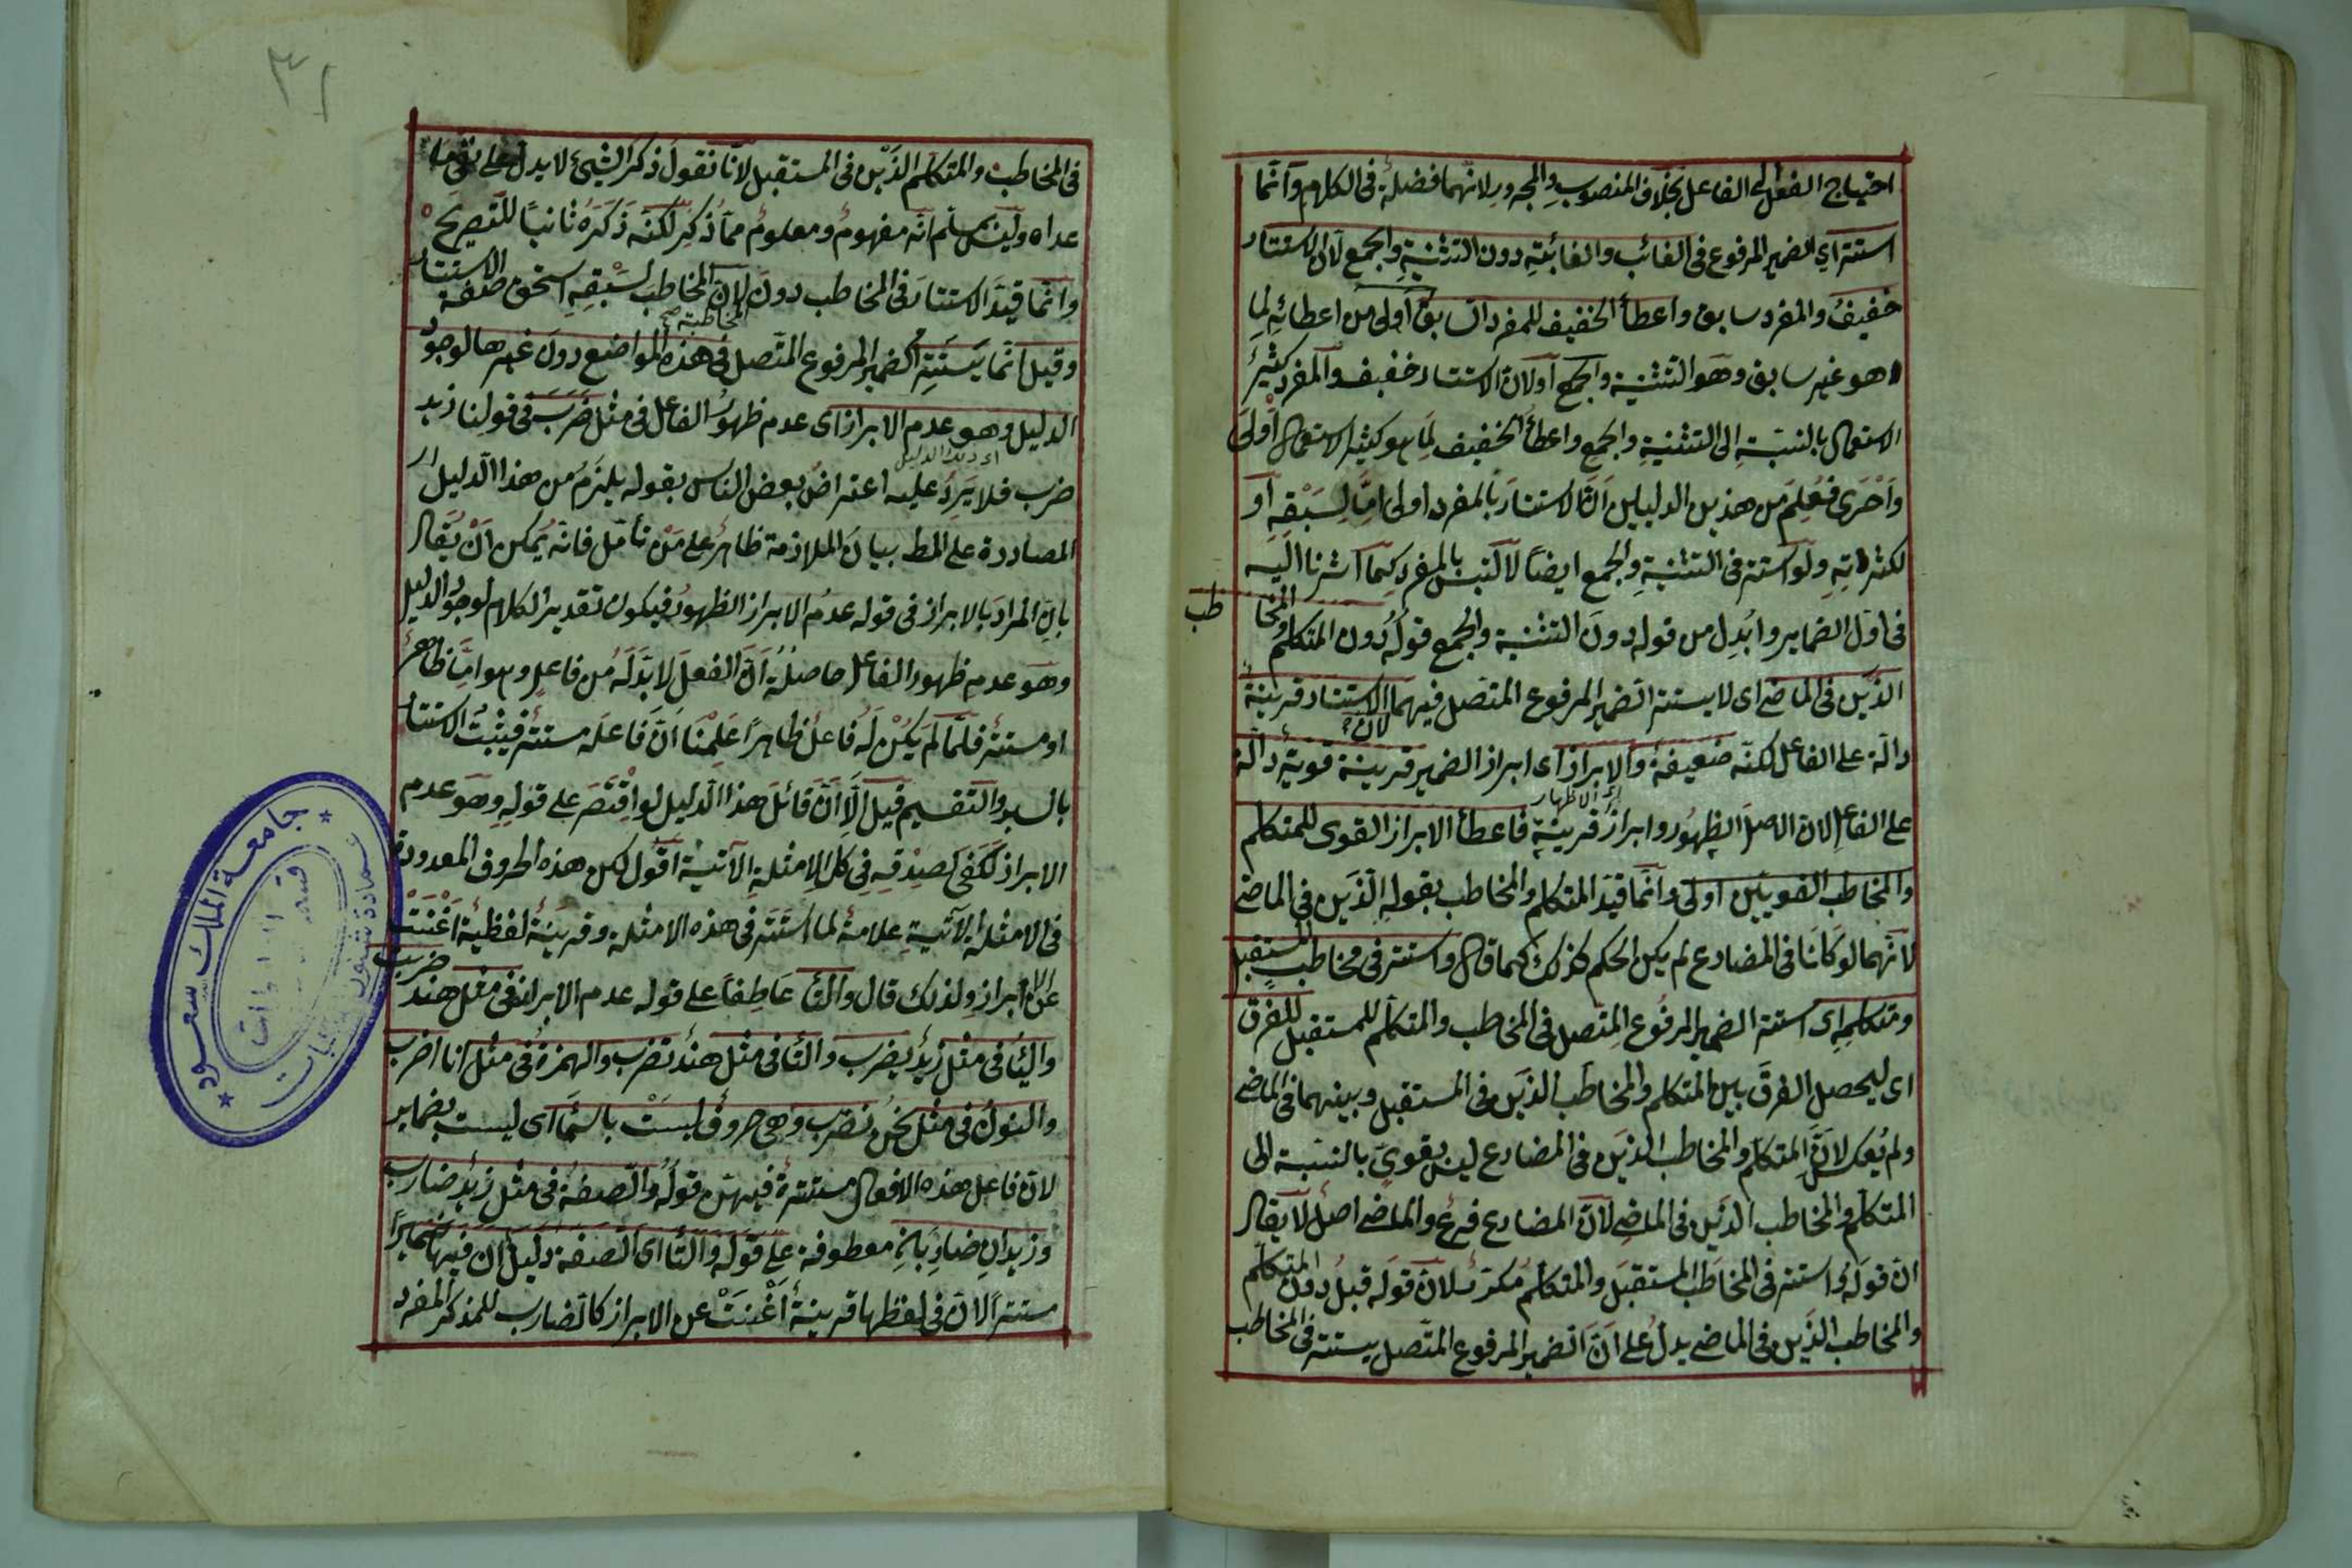 احتياج الفعل الى الفاعل بخلاف المنصوب والمجرور لانهما فضلة فى الكلام وانّما
استتر اي الضمير المرفوع فى الغائب والغائبة دون التثنية والجمع لانّ الاستتار
خفيف والمفرد سابق واعطاء الخفيف للمفرد السابق اولى من اعطائه لما
هو غير سابق وهو التثنية والجمع او لانّ الاستتار خفيف والمفرد كثير
الاستعمال بالنسبة الى التثنية والجمع واعطاء الخفيف لما هو كثير الاستعمال اولى
وأحرى فعُلِمَ من هذين الدليلين انّ الاستتار بالمفرد اولى امّا لسَبْقِهِ او
لكثرته ولو استتر فى التثنية والجمع ايضًا لالتبس بالمفرد كما اشرنا اليه
فى اول الضمائر وابُدِل من قوله دون التثنية والجمع قوله دون المتكلم والمخا
طب
الذَين فى الماضى اى لا يستتر الضمير المرفوع المتّصل فيهما لانّ الاستتار قرينة
دالّة على الفاعل لكنّه ضعيفة والابراز اى ابراز الضمير قرينة قوية دالّة
اى الاظهار
على الفاعل لانّ الاصل الظهور وابراز قرينة فاعطاء الابراز القوى للمتكلم
والمخاطب القويين اولى وانّما قيّد المتكلم والمخاطب بقوله الذَين فى الماضى
لانّهما لو كانا فى المضارع لم يكن الحكم كذلك كما قال واستتر فى مخاطب المستقبل
ومتكلمه اى استتر الضمير المرفوع المتّصل فى المخاطب والمتكلّم للمستقبل للفرق
اى ليحصل الفرق بين المتكلم والمخاطب الذَين فى المستقبل وبينهما فى الماضى
ولم يُعكس لانّ المتكلّم والمخاطب الذَين فى المضارع ليس بقوىّ بالنسبة الى
المتكلم والمخاطب الذَين فى الماضى لانّ المضارع فرع والماضى اصل لا يقال
انّ قوله واستتر فى المخاطب المستقبل والمتكلم مكرّر لانّ قوله قبلُ دون المتكلم
والمخاطب الذَين فى الماضى يدلّ على انّ الضمير المرفوع المتّصل يستتر فى المخاطب
فى المخاطب والمتكلم الذَين فى المستقبل لانّا نقول ذكر الشيئ لا يدل على نفى ما
عداه ولئن سلم انّه مفهوم ومعلوم ممّا ذُكِرَ لكنّه ذَكَرَهُ ثانيًا للتّصريح
وانّما قيّد الاستتار فى المخاطب دون المخاطبة صح لانّ المخاطب لسَبْقِهِ استحق صفة الاستتار
وقيل انّما يستتر الضمير المرفوع المتّصل فى هذه المواضع دون غيرها لوجود
الدليل وهو عدم الابراز اى عدم ظهور الفاعل فى مثل ضَرَبَ فى قولنا زيد
اى ذلك الدليل
ضرب فلا يَرِدُ عليه اعتراض بعض الناس بقوله يلزم من هذا الدليل
المصادرة على المط بيان الملازمة ظاهر على مَنْ تأمّل فانّه يُمكن انْ يُقال
بانّ المراد بالابراز فى قوله عدم الابراز الظهور فيكون تقدير الكلام لوجود الدليل
وهو عدم ظهور الفاعل حاصلُهُ انّ الفعل لا بدّ لَهُ من فاعل وهو امّا ظاهر
او مستتر فلمّا لم يَكُنْ لَهُ فاعل ظاهرًا عَلِمْنَا انّ فاعله مستتر فيثبت الاستتار
بالسبر والتقسيم قيل الّا انّ قائل هذا الدليل لو اقْتَصَرَ على قوله وهو عدم
الابراز لكفى لصِدْقِهِ فى كل الامثلة الآتية اقول لكن هذه الحروف المعدودة
فى الامثلة الآتية علامة لما استتر فى هذه الامثلة وقرينة لفظية أغْنَتْ
عن الابراز ولذلك قال والتاء عاطفًا على قوله عدم الابراز فى مثل هند ضربت
والياء فى مثل زيد يضرب والتاء فى مثل هند تضرب والهمزة فى مثل انا اضرب
والنون فى مثل نحن نضرب وهى حروف ليست باسماء اى ليست بضماير
لانّ فاعل هذه الافعال مستترة فيهنّ قوله والصفة فى مثل زيد ضارب
وزيدان ضاربان معطوفة على قوله والتاء اى الصفة دليل انّ فيها ضميرًا
مستترًا لانّ فى لفظها قرينة أغْنَتْ عن الابراز كالضارب للمذكر المفرد
جامعة الملك سعود
عمادة شئون المكتبات
قسم المخطوطات